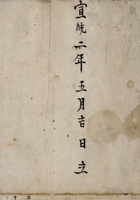 宣統二年五月吉日立